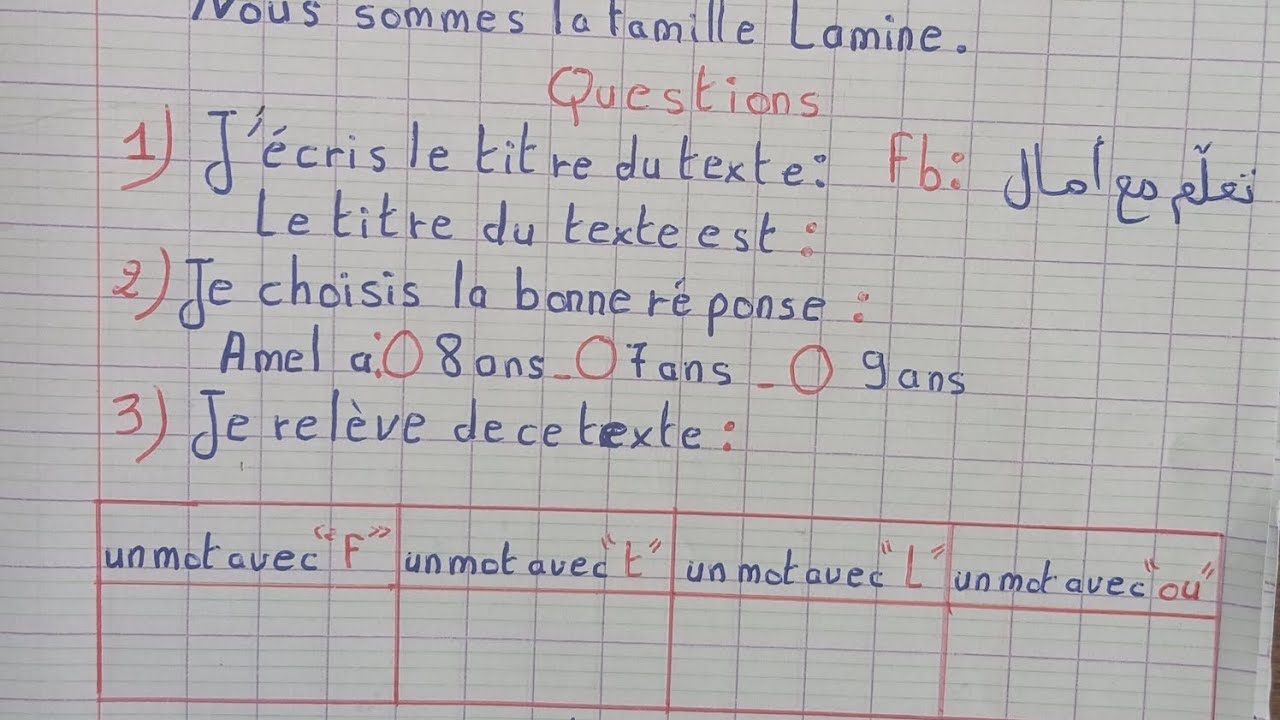 Nous sommes la famille Lamine.
Questions
1) J'écris le titre du texte: Fb: نتعلم مع أمال
Le titre du texte est :
2) Je choisis la bonne réponse :
Amel a: 8 ans - 7 ans - 9 ans
3) Je relève de ce texte :
un mot avec "F" un mot avec "t" un mot avec "L" un mot avec "ou"